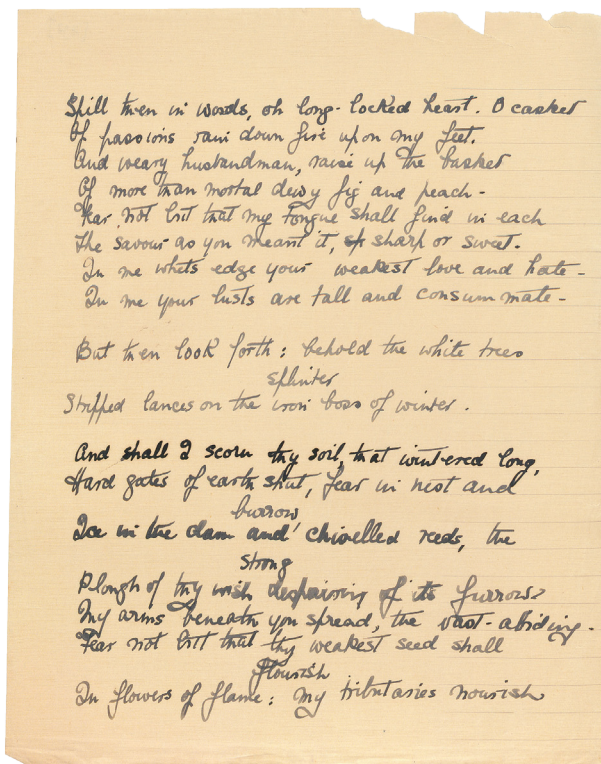 Spill then in words, oh long-locked heart. O casket
Of passions rain down fire upon my feet.
And weary husbandman, raise up the basket
Of more than mortal dewy fig and peach -
Fear not but that my tongue shall find in each
The savour as you meant it, sharp or sweet.
In me whets edge your weakest love and hate -
In me your lusts are tall and consummate -
But then look forth: behold the white trees
splinter
Stripped lances on the iron boss of winter.
And shall I scorn thy soil, that wintered long,
Hard gates of earth shut, fear in nest and
burrow
Ice in the dam and chiselled reeds, the
strong
Plough of thy wish despairing of its furrow?
My arms beneath you spread, the vast-abiding.
Fear not but that thy weakest seed shall
flourish
In flowers of flame: my tributaries nourish